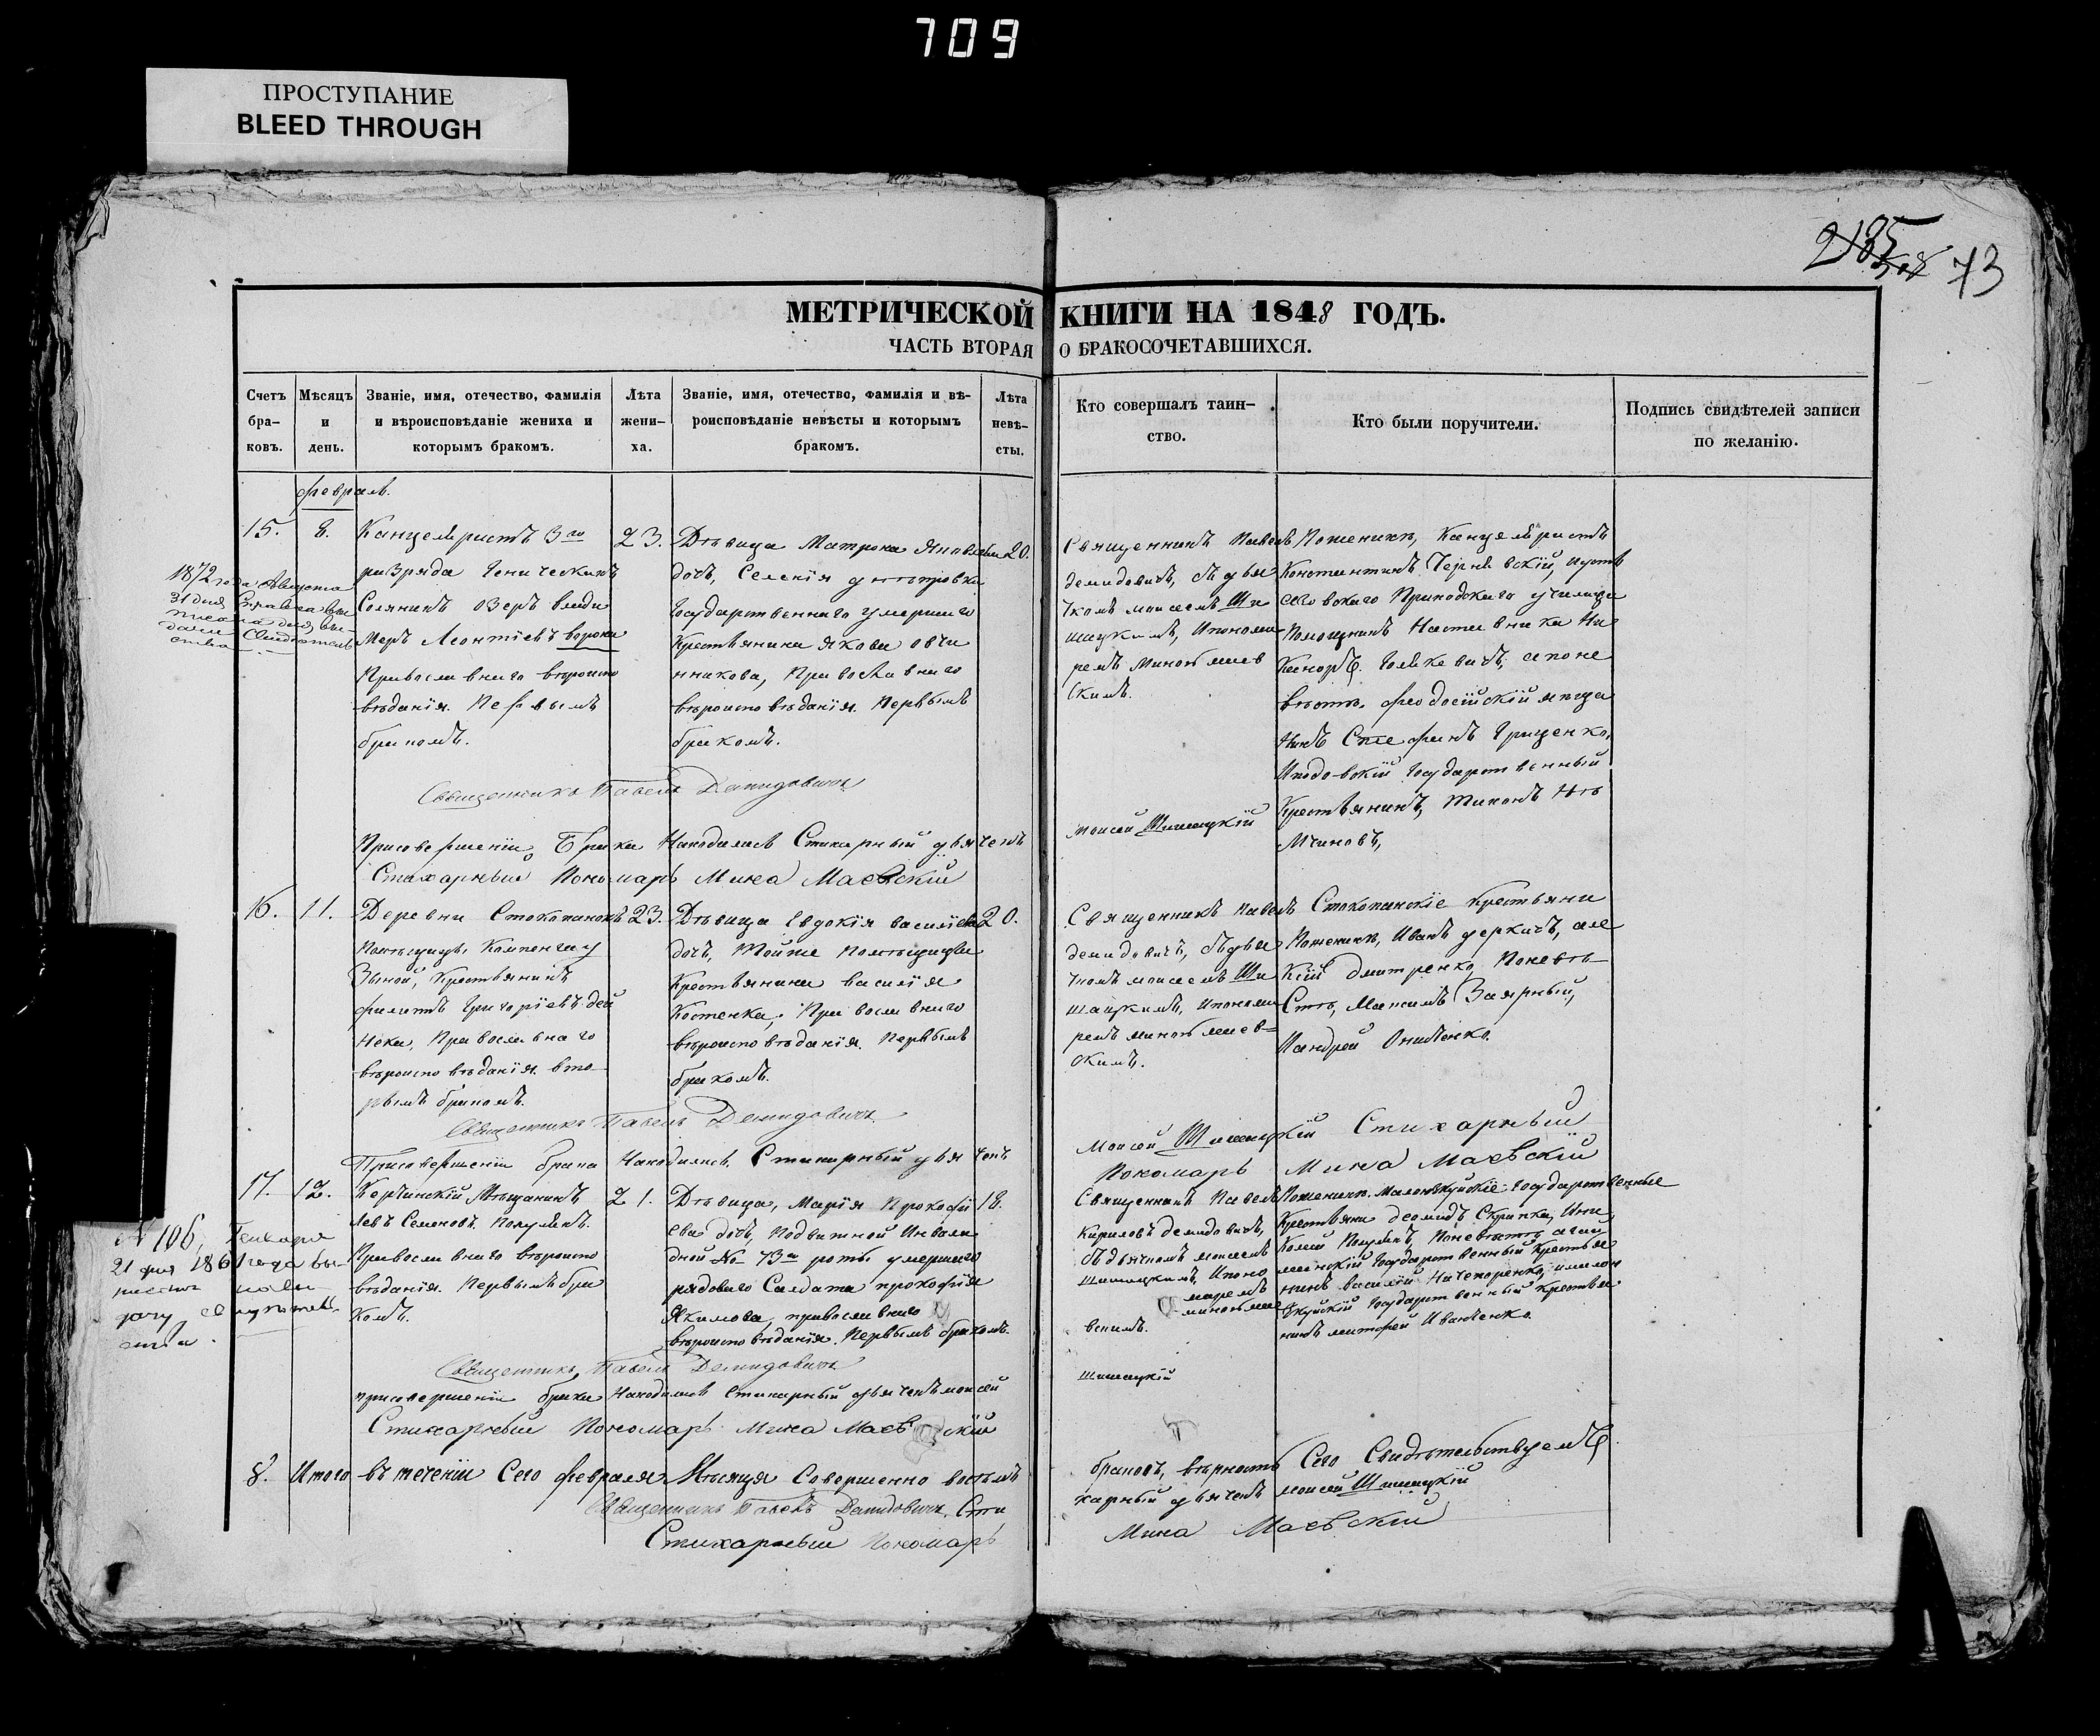 709
ПРОСТУПАНИЕ
BLEED THROUGH
73
МЕТРИЧЕСКОЙ КНИГИ НА 1848 ГОДЪ.
ЧАСТЬ ВТОРАЯ О БРАКОСОЧЕТАВШИХСЯ.
Счетъ браковъ.
Мѣсяцъ и день.
Званіе, имя, отечество, фамилія и вѣроисповѣданіе жениха и которымъ бракомъ.
Лѣта жениха.
Званіе, имя, отечество, фамилія и вѣроисповѣданіе невѣсты и которымъ бракомъ.
Лѣта невѣсты.
Кто совершалъ таинство.
Кто были поручители.
Подпись свидѣтелей записи по желанію.
февраль.
15.
8.
Канцеляристъ 3го
разряда Геническихъ
Соляныхъ озеръ влади
меръ Леонтіевъ
Православнаго вѣроиспо
вѣданія. Первымъ
бракомъ.
23.
Дѣвица Матрона Яковлева
дочь, Селенія
Государственнаго умершаго
Крестьянина Якова овчи
нникова, Православнаго
вѣроисповѣданія. Первымъ
бракомъ.
20.
Священникъ Павелъ
демидовичъ, съ дья
чкомъ моисеемъ Ши
шацкимъ, ипонома
ремъ миною маев
скимъ.
Поженихѣ, Канцеляристъ
Константинъ
Приходскаго училища
Помощникъ Наставника Ни
каноръ
вѣстѣ. феодосійскій мѣща
нинъ Стефанъ Гриценко,
Государственный
Крестьянинъ, тихонъ
1872 года Августа
31 дня Справка вы
писана для вы
дачи Свидѣтель
ства
Священникъ Павелъ Демидовичъ
Присовершеніи Брака Находился Стихарный дьячекъ моисей Шишацкій
Стихарный Пономарь Мина Маевскій
16.
11.
Деревни
Помѣщицы
Крестьянинъ
филипъ Григоріевъ дей
нека, Православнаго
вѣроисповѣданія вто
рымъ бракомъ.
23.
Дѣвица Евдокія василіева
дочь, Тойже помѣщицы
Крестьянина василія
Костенка, Православнаго
вѣроисповѣданія. Первымъ
бракомъ.
20.
Священникъ павелъ
демидовичъ, съ дья
чкомъ моисеемъ Ши
шацкимъ, ипонома
ремъ миною маев
скимъ.
крестьяни
Поженихѣ, Иванъ деркачъ, але
ксій дмитренко, Поневѣ
стѣ, Максимъ Заярный,
Иандрей
Священникъ Павелъ Демидовичъ
Присовершеніи брака Находился Стихарный дьячекъ Моисей Шишацкій Стихарный
Пономарь Мина Маевскій
17.
12.
Керчинскій Мѣщанинъ
Левъ Семеновъ
Православнаго вѣроиспо
вѣданія. Первымъ бра
комъ.
21.
Дѣвица, Марія Прокофі
ева дочь, Подвижной Инвали
дной № 73й роты умершаго
рядоваго Солдата прокофія
Якимова, православнаго
вѣроисповѣданія. Первымъ бракомъ.
18.
Священникъ Павелъ
Кириловъ демидовичъ,
съ дьячкомъ моисеемъ
Шишацкимъ, ипоно
маремъ
миною мае
вскимъ.
Поженихѣ. Государственные
Крестьяни Скрипка, Ини
Поневѣстѣ
Государственный крестья
нинъ василій Ничепоренко,
Государственный крестья
нинъ
№ 106, Генваря
21 дня 186
Священникъ Павелъ Демидовичъ
присовершеніи брака Находился Стихарный дьячекъ моисей Шишацкій
Стихарный Пономарь Мина Маевскій
8. Итого въ теченіи Сего февраля Мѣсяца Совершенно восемь браковъ, вѣрность Сего Свидѣтельствуемъ
Священникъ Павелъ Демидовичъ. Стихарный дьячекъ моисей Шишацкій
Стихарный Пономарь Мина Маевскій